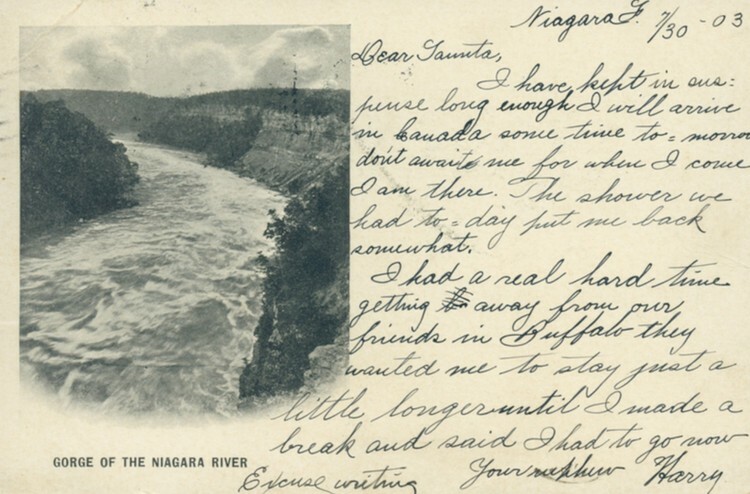 Niagara F. 7/30 - 03
Dear Taunta,
I have kept in sus=
pense long enough I will arrive
in Canada some time to=morrow
don't await me for when I come
I am there. The shower we
had to=day put me back
somewhat.
I had a real hard time
getting away from our
friends in Buffalo they
wanted me to stay just a
little longer until I made a
break and said I had to go now
Your nephew Harry
Excuse writing
GORGE OF THE NIAGARA RIVER